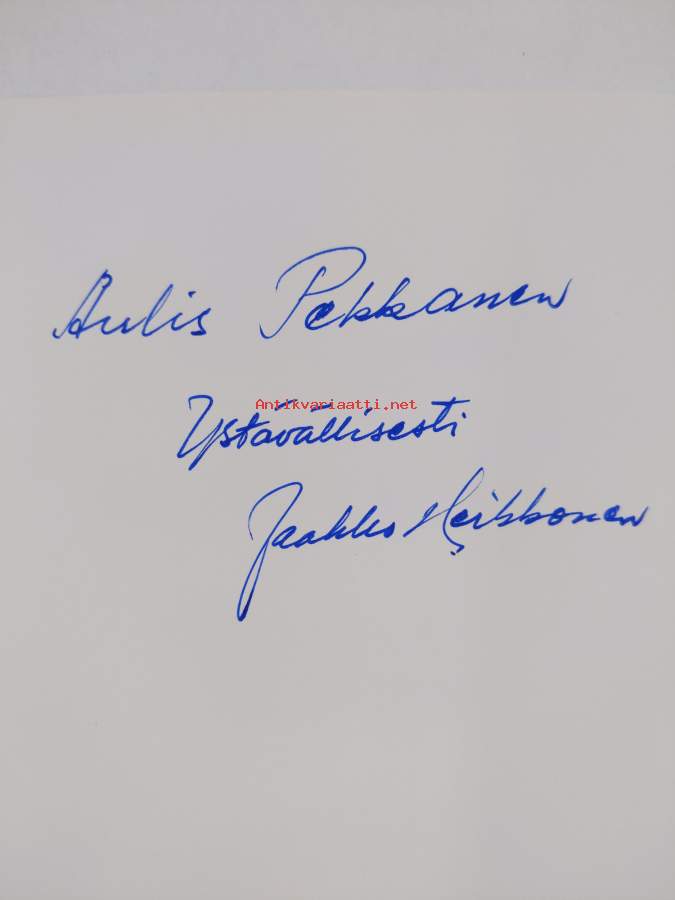 Aulis Pekkanen
Antikvariaatti.net
Ystävällisesti
Jaakko Heikkonen